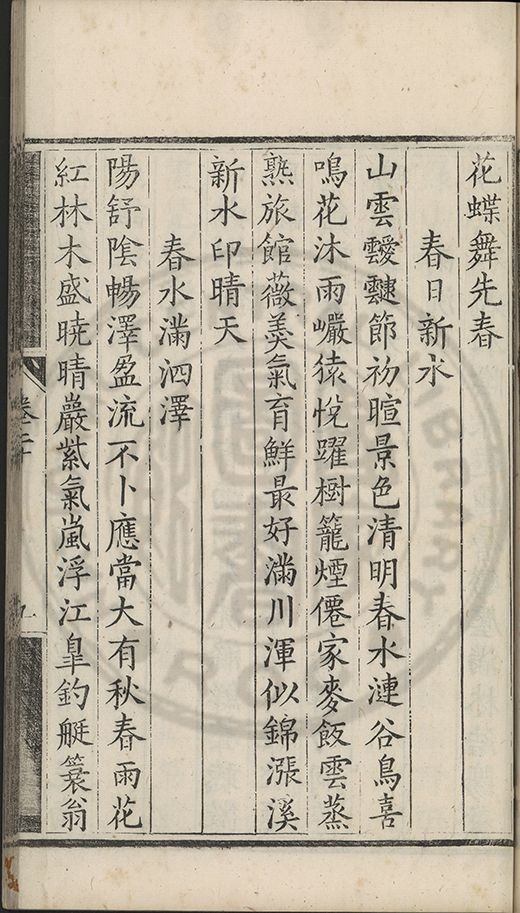 花蝶舞先春
春日新水
山雲靉靆節初暄景色清明春水漣谷鳥喜
鳴花沐雨巘猿悅躍樹籠煙僊家麥飯雲蒸
熟旅館薇羮氣育鮮最好滿川渾似錦漲溪
新水印晴天
春水滿泗澤
陽舒陰暢澤盈流不卜應當大有秋春雨花
紅林木盛曉晴巖紫氣嵐浮江臯釣艇簑翁
卷二十
九